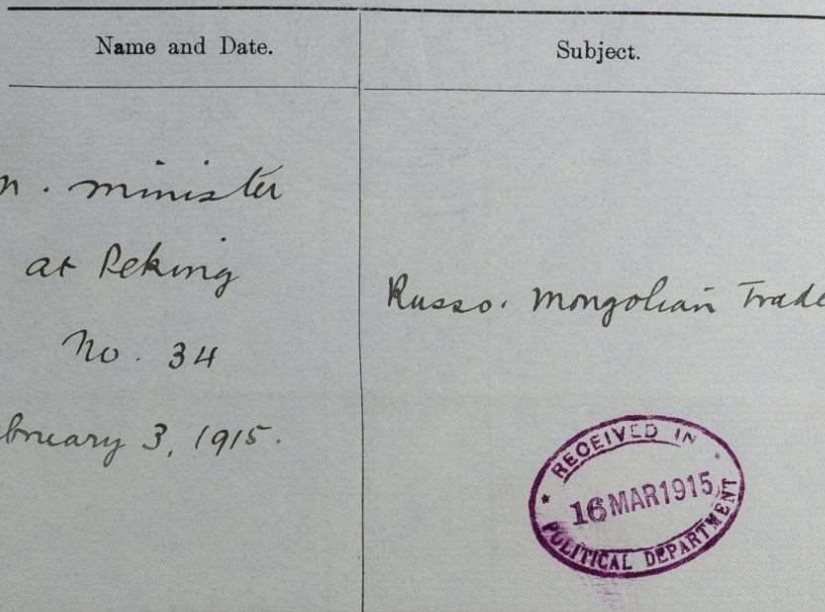 Name and Date.
Subject.
minister
at Peking
No. 34
bruary 3, 1915.
Russo. Mongolian Trade
RECEIVED IN
16 MAR 1915
POLITICAL DEPARTMENT